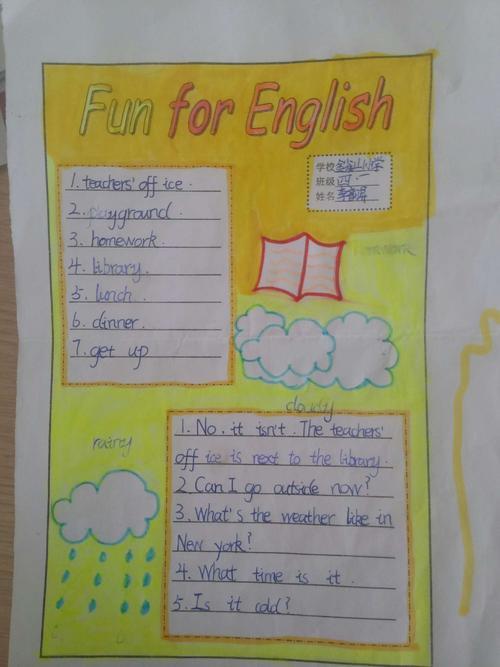 Fun for English
学校
班级 四.一
姓名
1. teachers' off ice.
2. playground.
3. homework.
4. library.
5. lunch.
6. dinner.
7. get up
cloudy
rainy
1. No, it isn't. The teachers'
off ice is next to the library.
2. Can I go outside now?
3. What's the weather like in
New york?
4. What time is it.
5. Is it cold?